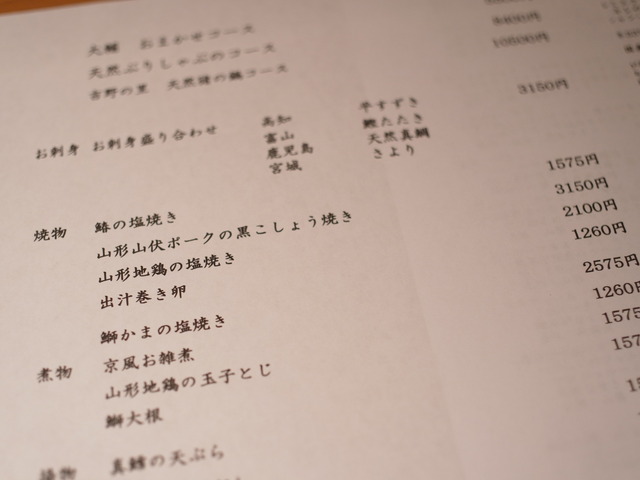 大輔 おまかせコース
天然ぶりしゃぶのコース
吉野の里 天然猪の鍋コース 10500円
お刺身 お刺身盛り合わせ 高知 平すずき 3150円
富山 鰹たたき
鹿児島 天然真鯛
宮城 さより
焼物 鰆の塩焼き 1575円
山形山伏ポークの黒こしょう焼き 3150円
山形地鶏の塩焼き 2100円
出汁巻き卵 1260円
鰤かまの塩焼き 2575円
煮物 京風お雑煮 1260円
山形地鶏の玉子とじ 1575
鰤大根 157
揚物 真鱈の天ぷら